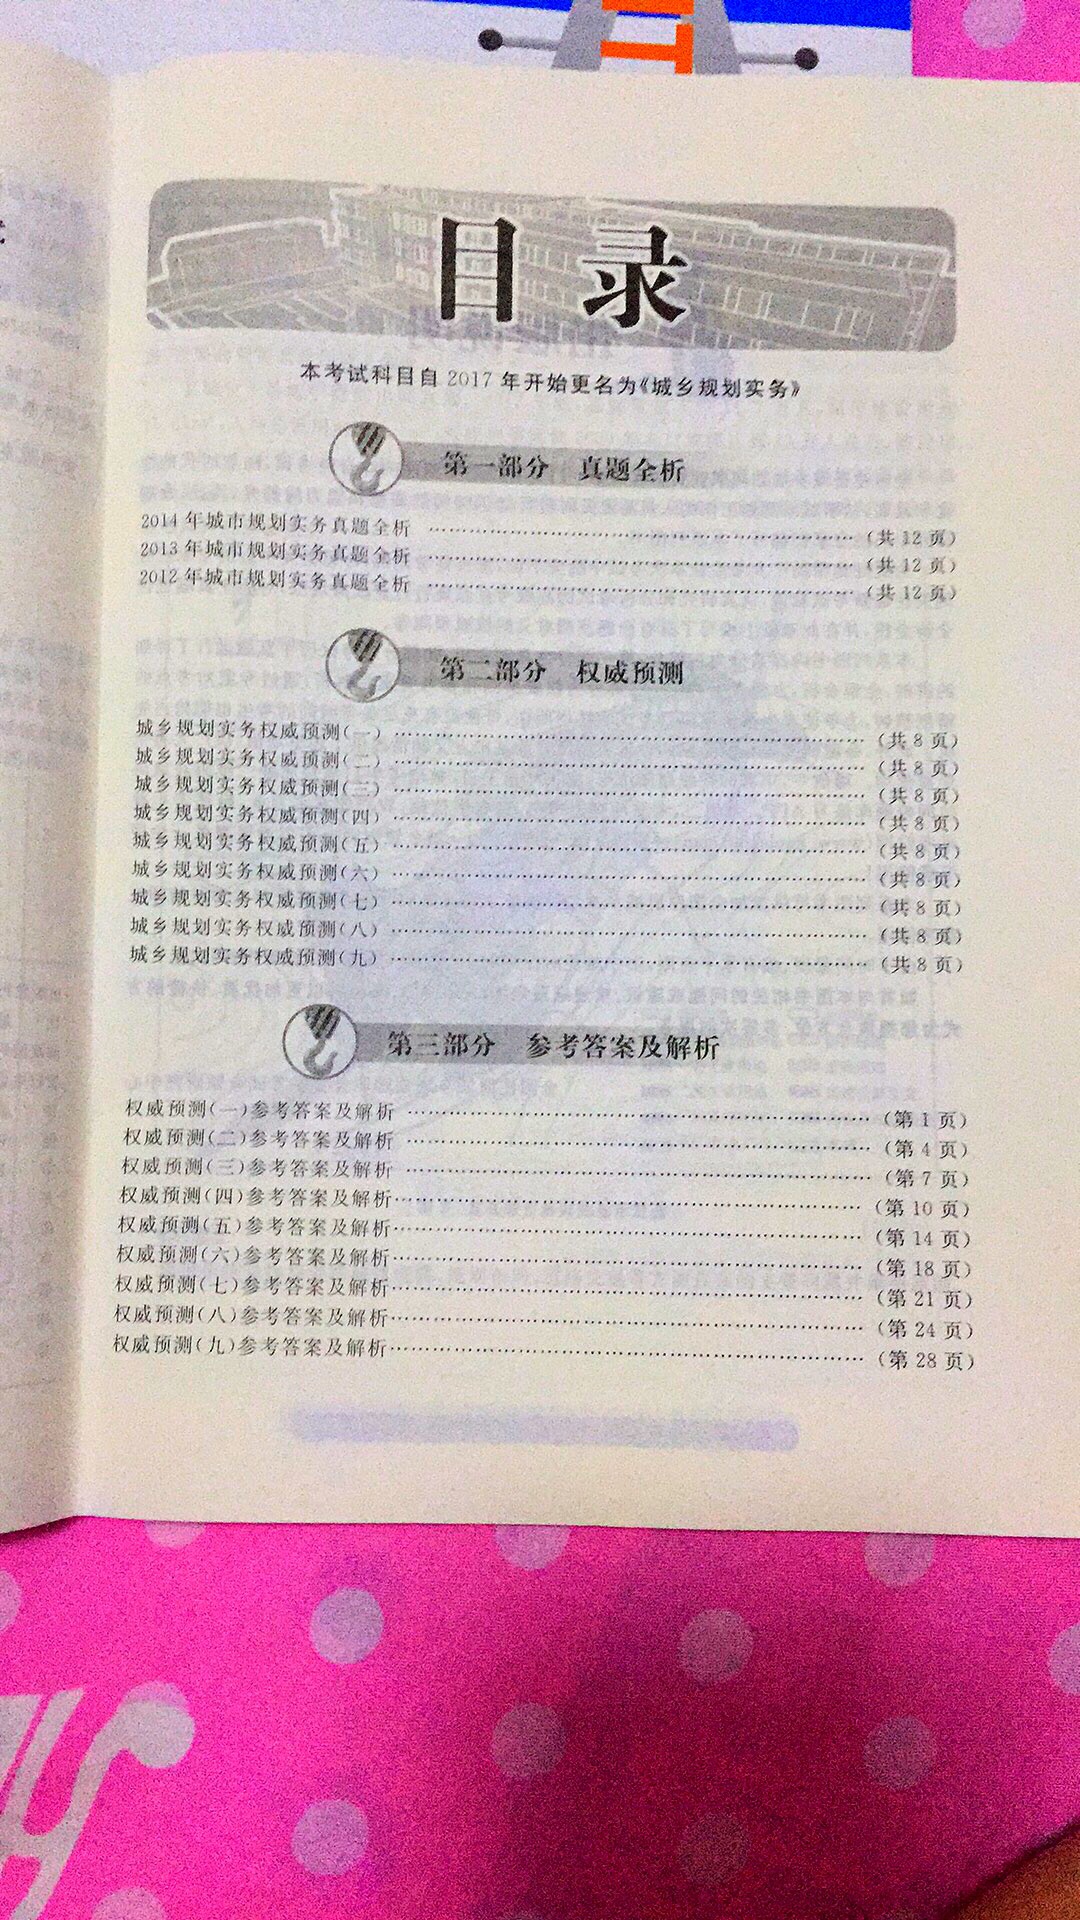 目录
本考试科目自2017年开始更名为《城乡规划实务》
第一部分 真题全析
2014年城市规划实务真题全析 ……………………………………………… (共12页)
2013年城市规划实务真题全析 ……………………………………………… (共12页)
2012年城市规划实务真题全析 ……………………………………………… (共12页)
第二部分 权威预测
城乡规划实务权威预测(一) ……………………………………………… (共8页)
城乡规划实务权威预测(二) ……………………………………………… (共8页)
城乡规划实务权威预测(三) ……………………………………………… (共8页)
城乡规划实务权威预测(四) ……………………………………………… (共8页)
城乡规划实务权威预测(五) ……………………………………………… (共8页)
城乡规划实务权威预测(六) ……………………………………………… (共8页)
城乡规划实务权威预测(七) ……………………………………………… (共8页)
城乡规划实务权威预测(八) ……………………………………………… (共8页)
城乡规划实务权威预测(九) ……………………………………………… (共8页)
第三部分 参考答案及解析
权威预测(一)参考答案及解析 ……………………………………………… (第1页)
权威预测(二)参考答案及解析 ……………………………………………… (第4页)
权威预测(三)参考答案及解析 ……………………………………………… (第7页)
权威预测(四)参考答案及解析 ……………………………………………… (第10页)
权威预测(五)参考答案及解析 ……………………………………………… (第14页)
权威预测(六)参考答案及解析 ……………………………………………… (第18页)
权威预测(七)参考答案及解析 ……………………………………………… (第21页)
权威预测(八)参考答案及解析 ……………………………………………… (第24页)
权威预测(九)参考答案及解析 ……………………………………………… (第28页)